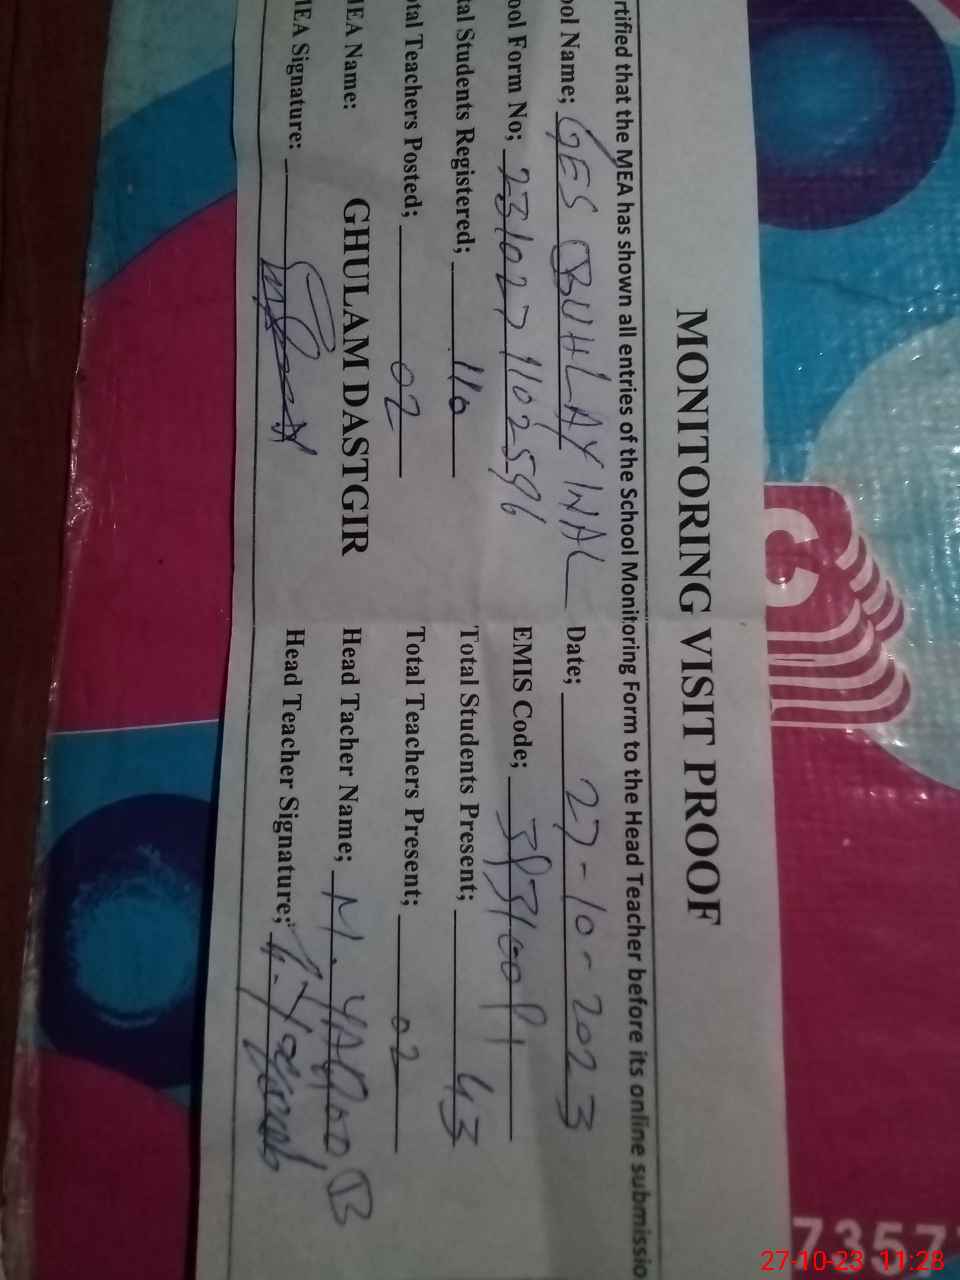 MONITORING VISIT PROOF
rtified that the MEA has shown all entries of the School Monitoring Form to the Head Teacher before its online submissio
ool Name; GES BUHLAY WAL Date; 27-10-2023
ool Form No; 2310271102596 EMIS Code;
tal Students Registered; 110 Total Students Present; 43
otal Teachers Posted; 02 Total Teachers Present; 02
MEA Name: GHULAM DASTGIR Head Tacher Name; M. YAQOOB
MEA Signature: Head Teacher Signature; M. Yaqoob
C
7357
27-10-23 11:28